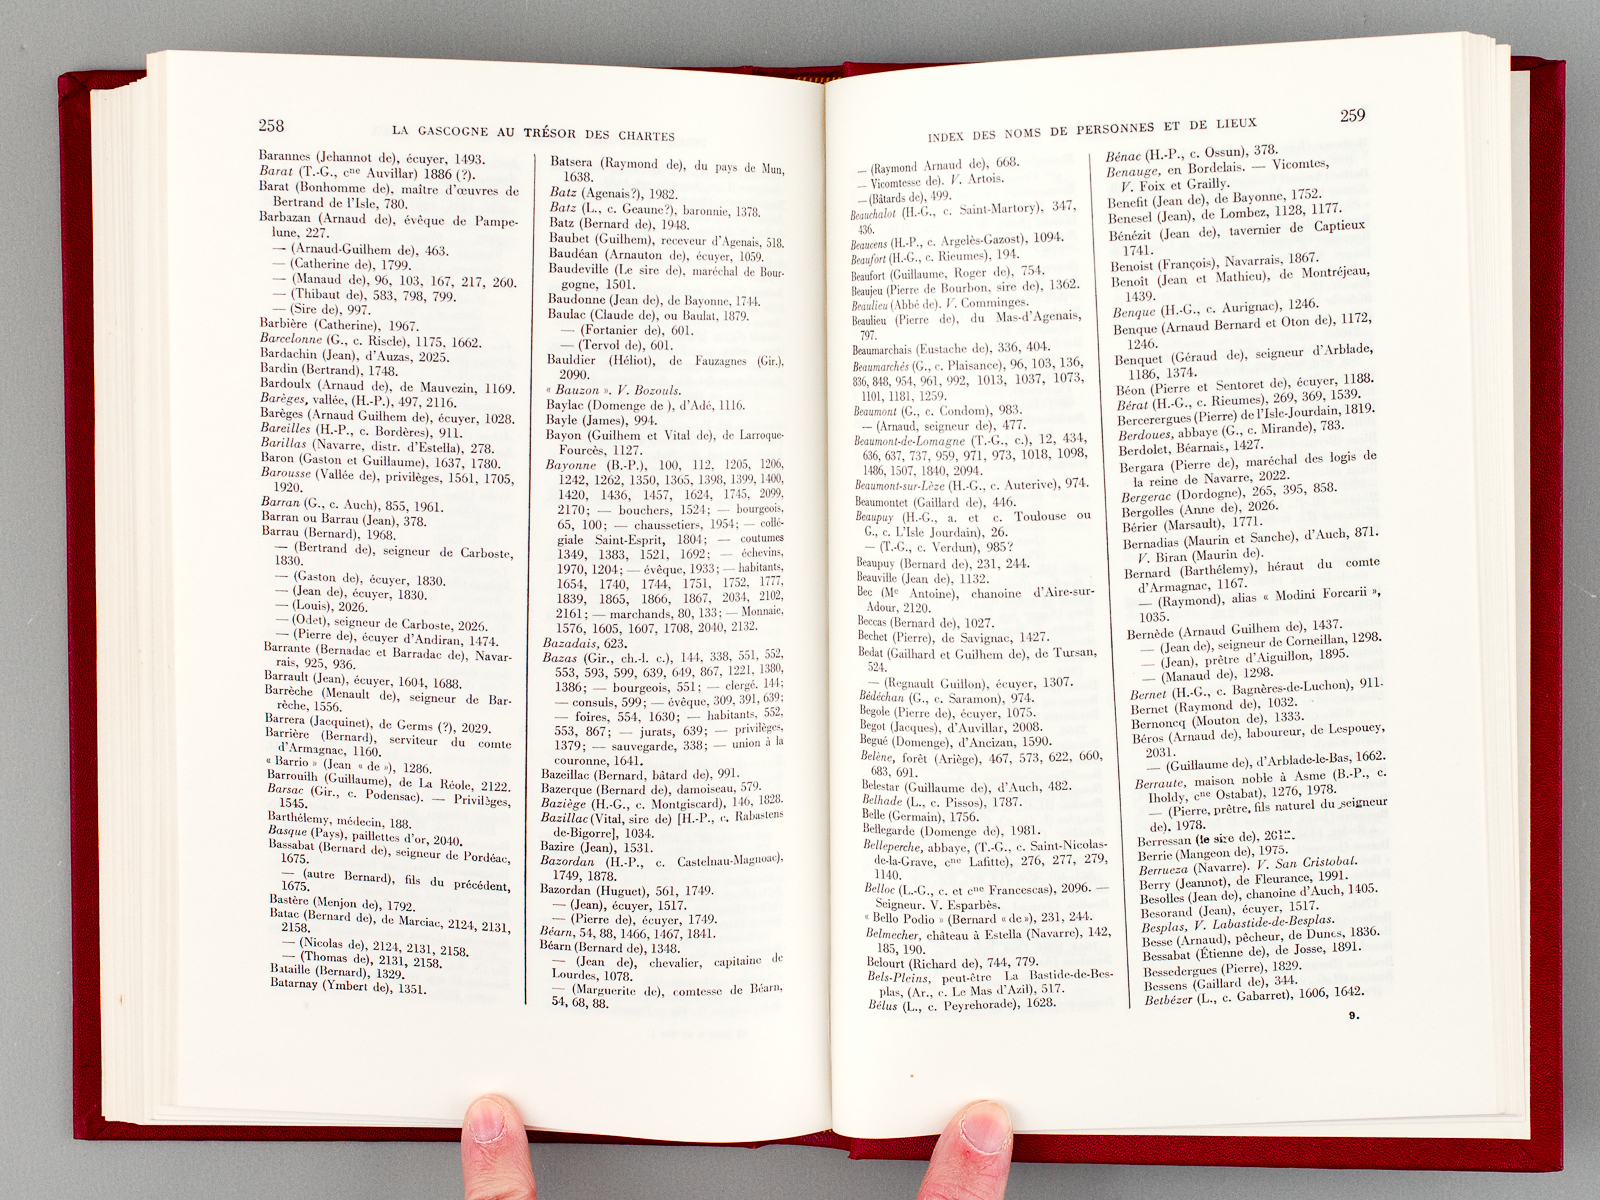 258
LA GASCOGNE AU TRÉSOR DES CHARTES
Barannes (Jehannot de), écuyer, 1493.
Barat (T.-G., cne Auvillar) 1886 (?).
Barat (Bonhomme de), maître d'œuvres de
Bertrand de l'Isle, 780.
Barbazan (Arnaud de), évêque de Pampe-
lune, 227.
— (Arnaud-Guilhem de), 463.
— (Catherine de), 1799.
— (Manaud de), 96, 103, 167, 217, 260.
— (Thibaut de), 583, 798, 799.
— (Sire de), 997.
Barbière (Catherine), 1967.
Barcelonne (G., c. Riscle), 1175, 1662.
Bardachin (Jean), d'Auzas, 2025.
Bardin (Bertrand), 1748.
Bardoulx (Arnaud de), de Mauvezin, 1169.
Barèges, vallée, (H.-P.), 497, 2116.
Barèges (Arnaud Guilhem de), écuyer, 1028.
Bareilles (H.-P., c. Bordères), 911.
Barillas (Navarre, distr. d'Estella), 278.
Baron (Gaston et Guillaume), 1637, 1780.
Barousse (Vallée de), privilèges, 1561, 1705,
1920.
Barran (G., c. Auch), 855, 1961.
Barran ou Barrau (Jean), 378.
Barrau (Bernard), 1968.
— (Bertrand de), seigneur de Carboste,
1830.
— (Gaston de), écuyer, 1830.
— (Jean de), écuyer, 1830.
— (Louis), 2026.
— (Odet), seigneur de Carboste, 2026.
— (Pierre de), écuyer d'Andiran, 1474.
Barrante (Bernadac et Barradac de), Navar-
rais, 925, 936.
Barrault (Jean), écuyer, 1604, 1688.
Barrèche (Menault de), seigneur de Bar-
rèche, 1556.
Barrera (Jacquinet), de Germs (?), 2029.
Barrière (Bernard), serviteur du comte
d'Armagnac, 1160.
« Barrio » (Jean « de »), 1286.
Barrouilh (Guillaume), de La Réole, 2122.
Barsac (Gir., c. Podensac). — Privilèges,
1545.
Barthélemy, médecin, 188.
Basque (Pays), paillettes d'or, 2040.
Bassabat (Bernard de), seigneur de Pordéac,
1675.
— (autre Bernard), fils du précédent,
1675.
Bastère (Menjon de), 1792.
Batac (Bernard de), de Marciac, 2124, 2131,
2158.
— (Nicolas de), 2124, 2131, 2158.
— (Thomas de), 2131, 2158.
Bataille (Bernard), 1329.
Batarnay (Ymbert de), 1351.
Batsera (Raymond de), du pays de Mun,
1638.
Batz (Agenais?), 1982.
Batz (L., c. Geaune?), baronnie, 1378.
Batz (Bernard de), 1948.
Baubet (Guilhem), receveur d'Agenais, 518.
Baudéan (Arnauton de), écuyer, 1059.
Baudeville (Le sire de), maréchal de Bour-
gogne, 1501.
Baudonne (Jean de), de Bayonne, 1744.
Baulac (Claude de), ou Baulat, 1879.
— (Fortanier de), 601.
— (Tervol de), 601.
Bauldier (Héliot), de Fauzagnes (Gir.),
2090.
« Bauzon ». V. Bozouls.
Baylac (Domenge de ), d'Adé, 1116.
Bayle (James), 994.
Bayon (Guilhem et Vital de), de Larroque-
Fourcès, 1127.
Bayonne (B.-P.), 100, 112, 1205, 1206,
1242, 1262, 1350, 1365, 1398, 1399, 1400,
1420, 1436, 1457, 1624, 1745, 2099,
2170; — bouchers, 1524; — bourgeois,
65, 100; — chaussetiers, 1954; — collé-
giale Saint-Esprit, 1804; — coutumes
1349, 1383, 1521, 1692; — échevins,
1970, 1204; — évêque, 1933; — habitants,
1654, 1740, 1744, 1751, 1752, 1777,
1839, 1865, 1866, 1867, 2034, 2102,
2161; — marchands, 80, 133; — Monnaie,
1576, 1605, 1607, 1708, 2040, 2132.
Bazadais, 623.
Bazas (Gir., ch.-l. c.), 144, 338, 551, 552,
553, 593, 599, 639, 649, 867, 1221, 1380,
1386; — bourgeois, 551; — clergé. 144;
— consuls, 599; — évêque, 309, 391, 639;
— foires, 554, 1630; — habitants, 552,
553, 867; — jurats, 639; — privilèges,
1379; — sauvegarde, 338; — union à la
couronne, 1641.
Bazeillac (Bernard, bâtard de), 991.
Bazerque (Bernard de), damoiseau, 579.
Baziège (H.-G., c. Montgiscard), 146, 1828.
Bazillac (Vital, sire de) [H.-P., c. Rabastens
de-Bigorre], 1034.
Bazire (Jean), 1531.
Bazordan (H.-P., c. Castelnau-Magnoac),
1749, 1878.
Bazordan (Huguet), 561, 1749.
— (Jean), écuyer, 1517.
— (Pierre de), écuyer, 1749.
Béarn, 54, 88, 1466, 1467, 1841.
Béarn (Bernard de), 1348.
— (Jean de), chevalier, capitaine de
Lourdes, 1078.
— (Marguerite de), comtesse de Béarn,
54, 68, 88.
INDEX DES NOMS DE PERSONNES ET DE LIEUX
259
— (Raymond Arnaud de), 668.
— Vicomtesse de). V. Artois.
— (Bâtards de), 499.
Beauchalot (H.-G., c. Saint-Martory), 347,
436.
Beaucens (H.-P., c. Argelès-Gazost), 1094.
Beaufort (H.-G., c. Rieumes), 194.
Beaufort (Guillaume, Roger de), 754.
Beaujeu (Pierre de Bourbon, sire de), 1362.
Beaulieu (Abbé de). V. Comminges.
Beaulieu (Pierre de), du Mas-d'Agenais,
797.
Beaumarchais (Eustache de), 336, 404.
Beaumarchés (G., c. Plaisance), 96, 103, 136,
836, 848, 954, 961, 992, 1013, 1037, 1073,
1101, 1181, 1259.
Beaumont (G., c. Condom), 983.
— (Arnaud, seigneur de), 477.
Beaumont-de-Lomagne (T.-G., c.), 12, 434,
636, 637, 737, 959, 971, 973, 1018, 1098,
1486, 1507, 1840, 2094.
Beaumont-sur-Lèze (H.-G., c. Auterive), 974.
Beaumontet (Gaillard de), 446.
Beaupuy (H.-G., a. et c. Toulouse ou
G., c. L'Isle Jourdain), 26.
— (T.-G., c. Verdun), 985?
Beaupuy (Bernard de), 231, 244.
Beauville (Jean de), 1132.
Bec (Me Antoine), chanoine d'Aire-sur-
Adour, 2120.
Beccas (Bernard de), 1027.
Bechet (Pierre), de Savignac, 1427.
Bedat (Gailhard et Guilhem de), de Tursan,
524.
— (Regnault Guillon), écuyer, 1307.
Bédéchan (G., c. Saramon), 974.
Begole (Pierre de), écuyer, 1075.
Begot (Jacques), d'Auvillar, 2008.
Begué (Domenge), d'Ancizan, 1590.
Belène, forêt (Ariège), 467, 573, 622, 660,
683, 691.
Belestar (Guillaume de), d'Auch, 482.
Belhade (L., c. Pissos), 1787.
Belle (Germain), 1756.
Bellegarde (Domenge de), 1981.
Belleperche, abbaye, (T.-G., c. Saint-Nicolas-
de-la-Grave, cne Lafitte), 276, 277, 279,
1140.
Belloc (L.-G., c. et cne Francescas), 2096. —
Seigneur. V. Esparbès.
« Bello Podio » (Bernard « de »), 231, 244.
Belmecher, château à Estella (Navarre), 142,
185, 190.
Belourt (Richard de), 744, 779.
Bels-Pleins, peut-être La Bastide-de-Bes-
plas, (Ar., c. Le Mas d'Azil), 517.
Bélus (L., c. Peyrehorade), 1628.
Bénac (H.-P., c. Ossun), 378.
Benauge, en Bordelais. — Vicomtes,
V. Foix et Grailly.
Benefit (Jean de), de Bayonne, 1752.
Benesel (Jean), de Lombez, 1128, 1177.
Bénézit (Jean de), tavernier de Captieux
1741.
Benoist (François), Navarrais, 1867.
Benoît (Jean et Mathieu), de Montréjeau,
1439.
Benque (H.-G., c. Aurignac), 1246.
Benque (Arnaud Bernard et Oton de), 1172,
1246.
Benquet (Géraud de), seigneur d'Arblade,
1186, 1374.
Béon (Pierre et Sentoret de), écuyer, 1188.
Bérat (H.-G., c. Rieumes), 269, 369, 1539.
Bercerergues (Pierre) de l'Isle-Jourdain, 1819.
Berdoues, abbaye (G., c. Mirande), 783.
Berdolet, Béarnais, 1427.
Bergara (Pierre de), maréchal des logis de
la reine de Navarre, 2022.
Bergerac (Dordogne), 265, 395, 858.
Bergolles (Anne de), 2026.
Bérier (Marsault), 1771.
Bernadias (Maurin et Sanche), d'Auch, 871.
V. Biran (Maurin de).
Bernard (Barthélemy), héraut du comte
d'Armagnac, 1167.
— (Raymond), alias « Modini Forcarii »,
1035.
Bernède (Arnaud Guilhem de), 1437.
— (Jean de), seigneur de Corneillan, 1298.
— (Jean), prêtre d'Aiguillon, 1895.
— (Manaud de), 1298.
Bernet (H.-G., c. Bagnères-de-Luchon), 911.
Bernet (Raymond de), 1032.
Bernoncq (Mouton de), 1333.
Béros (Arnaud de), laboureur, de Lespouey,
2031.
— (Guillaume de), d'Arblade-le-Bas, 1662.
Berraute, maison noble à Asme (B.-P., c.
Iholdy, cne Ostabat), 1276, 1978.
— (Pierre, prêtre, fils naturel du seigneur
de), 1978.
Berressan (le sire de),
Berrie (Mangeon de), 1975.
Berrueza (Navarre). V. San Cristobal.
Berry (Jeannot), de Fleurance, 1991.
Besolles (Jean de), chanoine d'Auch, 1405.
Besorand (Jean), écuyer, 1517.
Besplas, V. Labastide-de-Besplas.
Besse (Arnaud), pêcheur, de Dunes, 1836.
Bessabat (Étienne de), de Josse, 1891.
Bessedergues (Pierre), 1829.
Bessens (Gaillard de), 344.
Betbézer (L., c. Gabarret), 1606, 1642.
9.